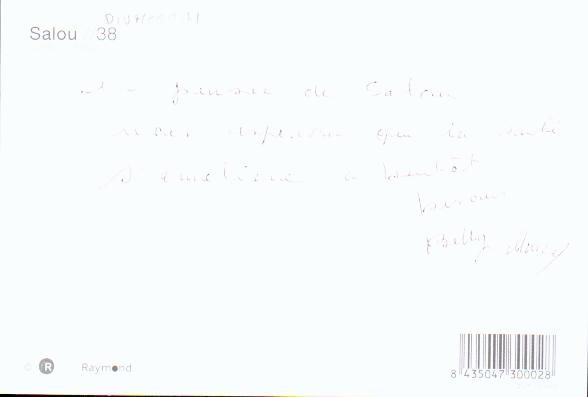 Salou 38
pensée de Salou
nous espérons que la santé
s'améliore a bientôt
bisous
Betty
© R Raymond
8 435047 300028